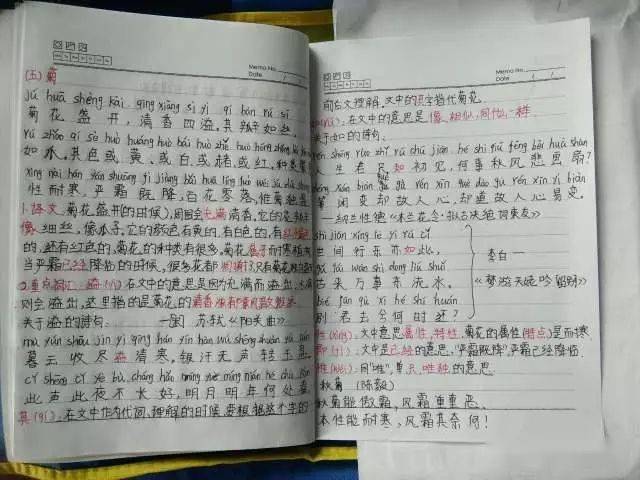 Memo No.
Date
(五) 菊
jú huā shèng kāi qīng xiāng sì yì qí bàn rú sī
菊花盛开,清香四溢。其瓣如丝,
如爪。其色或黄、或白、或赭、或红,种
性耐寒,严霜既降,百花零落,惟菊独
1.译文:菊花盛开(的时候),周围会充满清香,它的花瓣
像细丝,像爪子,它的颜色有黄的,有白的,有
的,还有红色的,菊花的种类有很多。菊花属于耐寒
当严霜已经降临的时候,很多花都凋谢了,只有菊花
2.重点词汇:溢(yì)在文中的意思是因为充满而溢出
则会溢出,这里指的是菊花的清香
关于溢的诗句: 苏轼《阳关曲》
mù yún shōu jìn yì qīng hán yín hàn wú shēng zhuǎn yù pán
暮云收尽溢清寒,银汉无声转玉盘
cǐ shēng cǐ yè bù cháng hǎo míng yuè míng nián hé chù kàn
此生此夜不长好,明月明年何处看
其(qí):在文中作代词,理解的时候要根据这个字的
Memo No.
Date
前后文理解,文中的其字指代菊花。
在文中的意思是像、相似,同什么一样。
关于如的诗句:
rén shēng ruò zhǐ rú chū jiàn hé shì qiū fēng bēi huà shàn
人生若只如初见,何事秋风悲画扇?
děng xián biàn què gù rén xīn què dào gù rén xīn yì biàn
等闲变却故人心,却道故人心易变。
—纳兰性德《木兰花令·拟古决绝词柬友》
shì jiān xíng lè yì rú cǐ
世间行乐亦如此,
gǔ lái wàn shì dōng liú shuǐ
古来万事东流水。
bié jūn qù xī hé shí huán
别君去兮何时还?
李白—
《梦游天姥吟留别》
性(xìng):文中意思属性,特性。菊花的属性(特点)是耐寒
既(jì):文中是已经的意思,“严霜既降”严霜已经降临
惟(wéi):同“唯”,单、唯独的意思
秋菊 (陈毅)
秋菊能傲霜,风霜重重恶。
本性能耐寒,风霜其奈何!